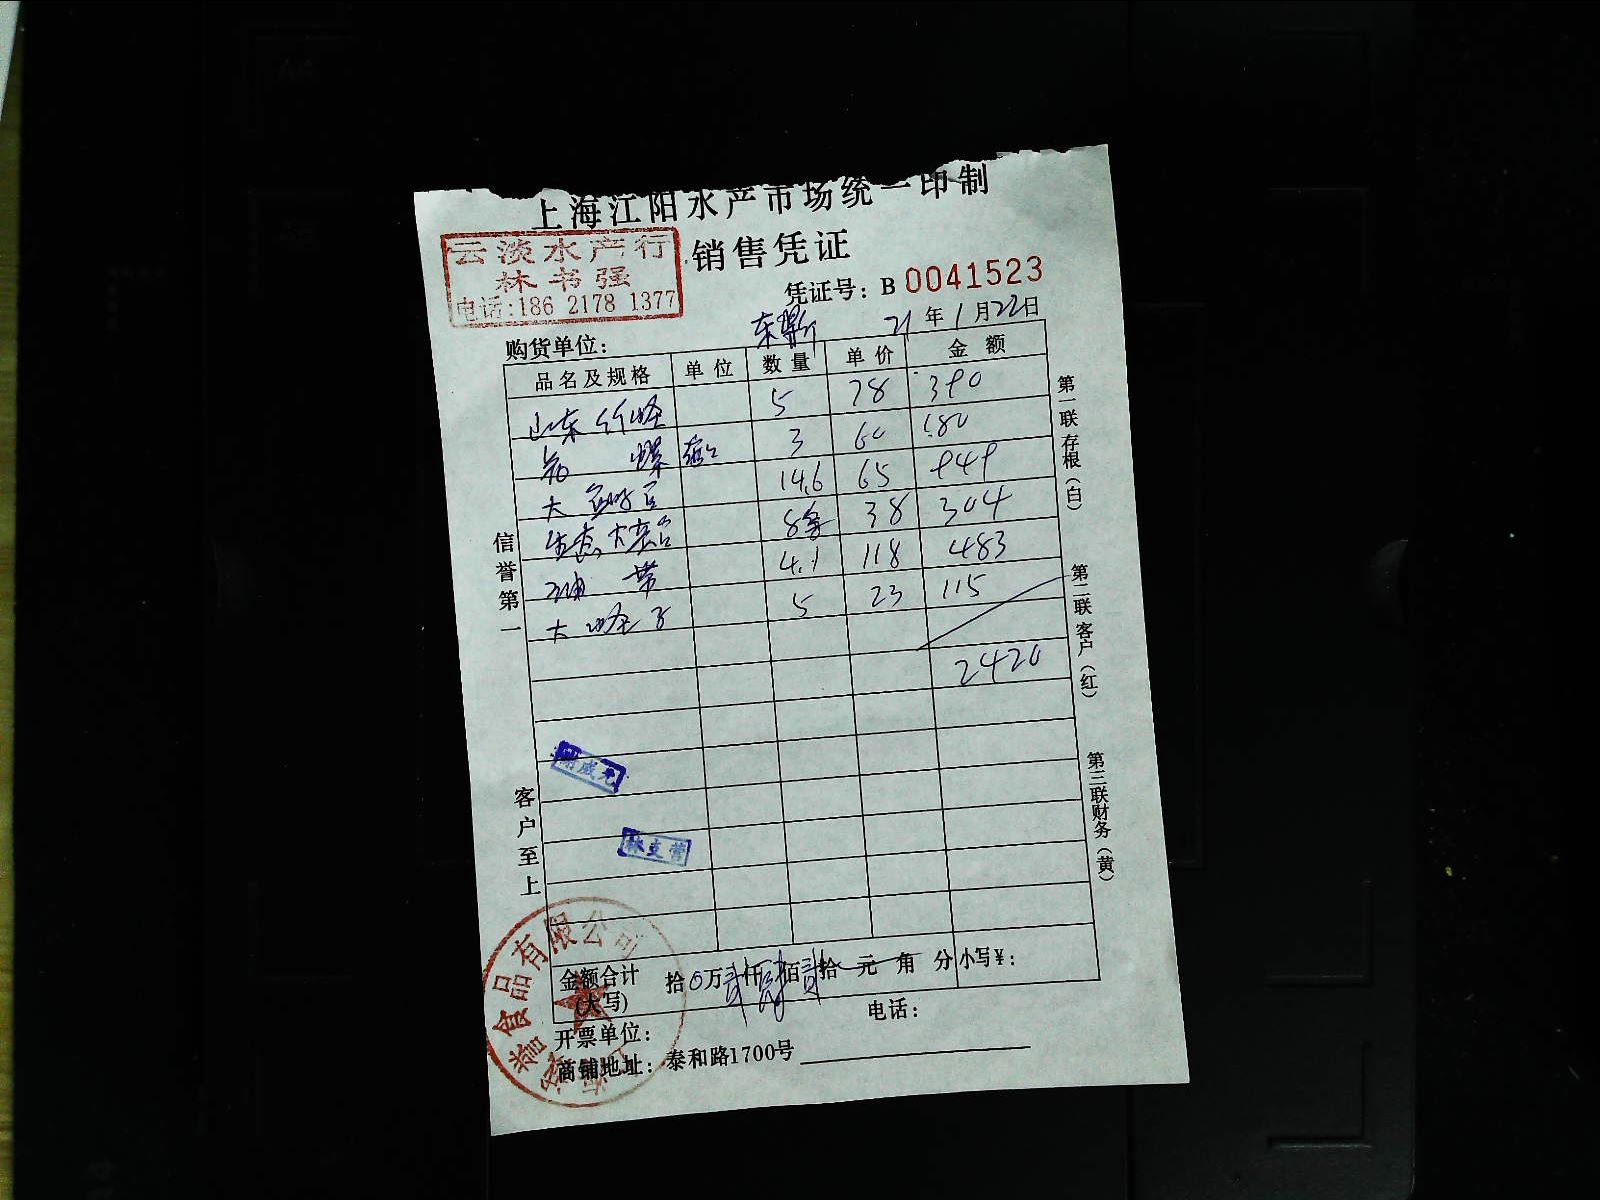 上海江阳水产市场统一印制
销售凭证
云淡水产行
林书强
电话:186 2178 1377
凭证号: B 0041523
21年1月22日
购货单位:
品名及规格 单位 数量 单价 金额
山东 5 78 390
螺 3 60 180
大 14.6 65 949
8条 38 304
油带 4.1 118 483
大 子 5 23 115
2420
信誉第一
客户至上
第一联存根(白)
第二联客户(红)
第三联财务(黄)
食品有限公司
金额合计(大写) 拾0万贰仟肆佰贰拾元角分 小写¥:
开票单位: 电话:
商铺地址: 泰和路1700号